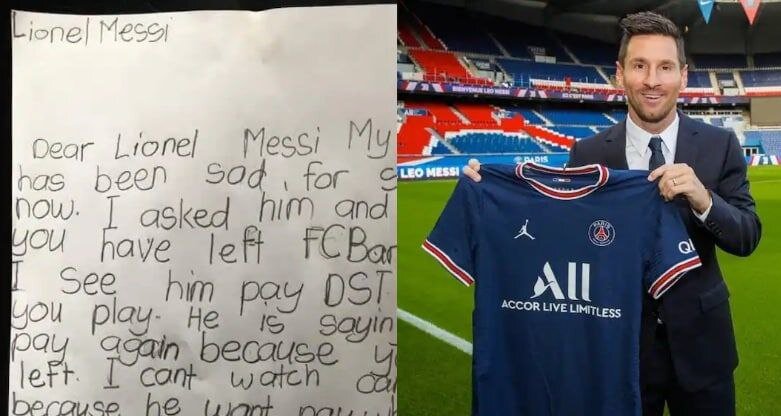 Lionel Messi
Dear Lionel Messi My
has been sad for
now. I asked him and
you have left FCBar
I see him pay DST
you play. He is sayin
pay again because
left. I cant watch
because he want pay
BIENVENUE LEO MESSI
LEO MESSI
PARIS
PARIS
All
ACCOR LIVE LIMITLESS
Q